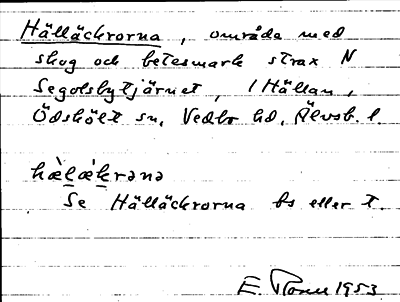 Hälläckrorna, område med
skog och betesmark strax N
Segolsbytjärnet, 1 Hällan,
Ödskölt sn, Vedbo hd, Älvsb. l.
hæ̀læ̀krəna
Se Hälläckrorna bs eller t.
E. 1953